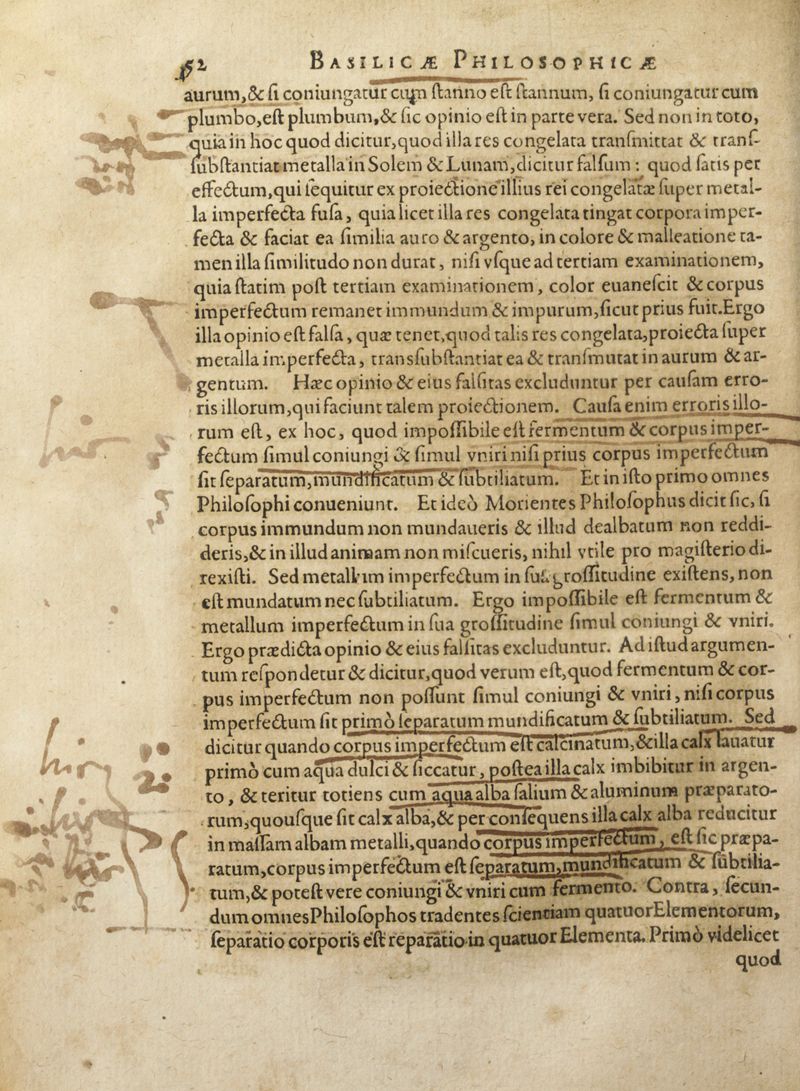 52 BASILICÆ PHILOSOPHICÆ
aurum,& ſi coniungatur cum ſtanno eſt ſtannum, ſi coniungatur cum
plumbo,eſt plumbum,& ſic opinio eſt in parte vera. Sed non in toto,
quia in hoc quod dicitur,quod illa res congelata tranſmittat & tranſ-
ſubſtantiat metalla in Solem & Lunam,dicitur falſum: quod ſatis per
effectum,qui ſequitur ex proiectione illius rei congelatæ ſuper metal-
la imperfecta fuſa, quia licet illa res congelata tingat corpora imper-
fecta & faciat ea ſimilia auro & argento, in colore & malleatione ta-
men illa ſimilitudo non durat, niſi vſque ad tertiam examinationem,
quia ſtatim poſt tertiam examinationem, color euaneſcit & corpus
imperfectum remanet immundum & impurum,ſicut prius fuit.Ergo
illa opinio eſt falſa, quæ tenet,quod talis res congelata,proiecta ſuper
metalla imperfecta, transſubſtantiat ea & tranſmutat in aurum & ar-
gentum. Hæc opinio & eius falſitas excluduntur per cauſam erro-
ris illorum,qui faciunt talem proiectionem. Cauſa enim erroris illo-
rum eſt, ex hoc, quod impoſſibile eſt fermentum & corpus imper-
fectum ſimul coniungi & ſimul vniri niſi prius corpus imperfectum
ſit ſeparatum,mundificatum & ſubtiliatum. Et in iſto primo omnes
Philoſophi conueniunt. Et ideò Morientes Philoſophus dicit ſic, ſi
corpus immundum non mundaueris & illud dealbatum non reddi-
deris,& in illud animam non miſcueris, nihil vtile pro magiſterio di-
rexiſti. Sed metallum imperfectum in ſua groſſitudine exiſtens, non
eſt mundatum nec ſubtiliatum. Ergo impoſſibile eſt fermentum &
metallum imperfectum in ſua groſſitudine ſimul coniungi & vniri.
Ergo prædicta opinio & eius falſitas excluduntur. Ad iſtud argumen-
tum reſpondetur & dicitur,quod verum eſt,quod fermentum & cor-
pus imperfectum non poſſunt ſimul coniungi & vniri, niſi corpus
imperfectum ſit primò ſeparatum mundificatum & ſubtiliatum. Sed
dicitur quando corpus imperfectum eſt calcinatum,& illa calx lauatur
primò cum aqua dulci & ſiccatur, poſtea illa calx imbibitur in argen-
to, & teritur totiens cum aqua alba ſalium & aluminum præparato-
rum,quouſque ſit calx alba,& per conſequens illa calx alba reducitur
in maſſam albam metalli,quando corpus imperfectum, eſt ſic præpa-
ratum,corpus imperfectum eſt ſeparatum,mundificatum & ſubtilia-
tum,& poteſt vere coniungi & vniri cum fermento. Contra, ſecun-
dum omnes Philoſophos tradentes ſcientiam quatuor Elementorum,
ſeparatio corporis eſt reparatio in quatuor Elementa. Primò videlicet
quod